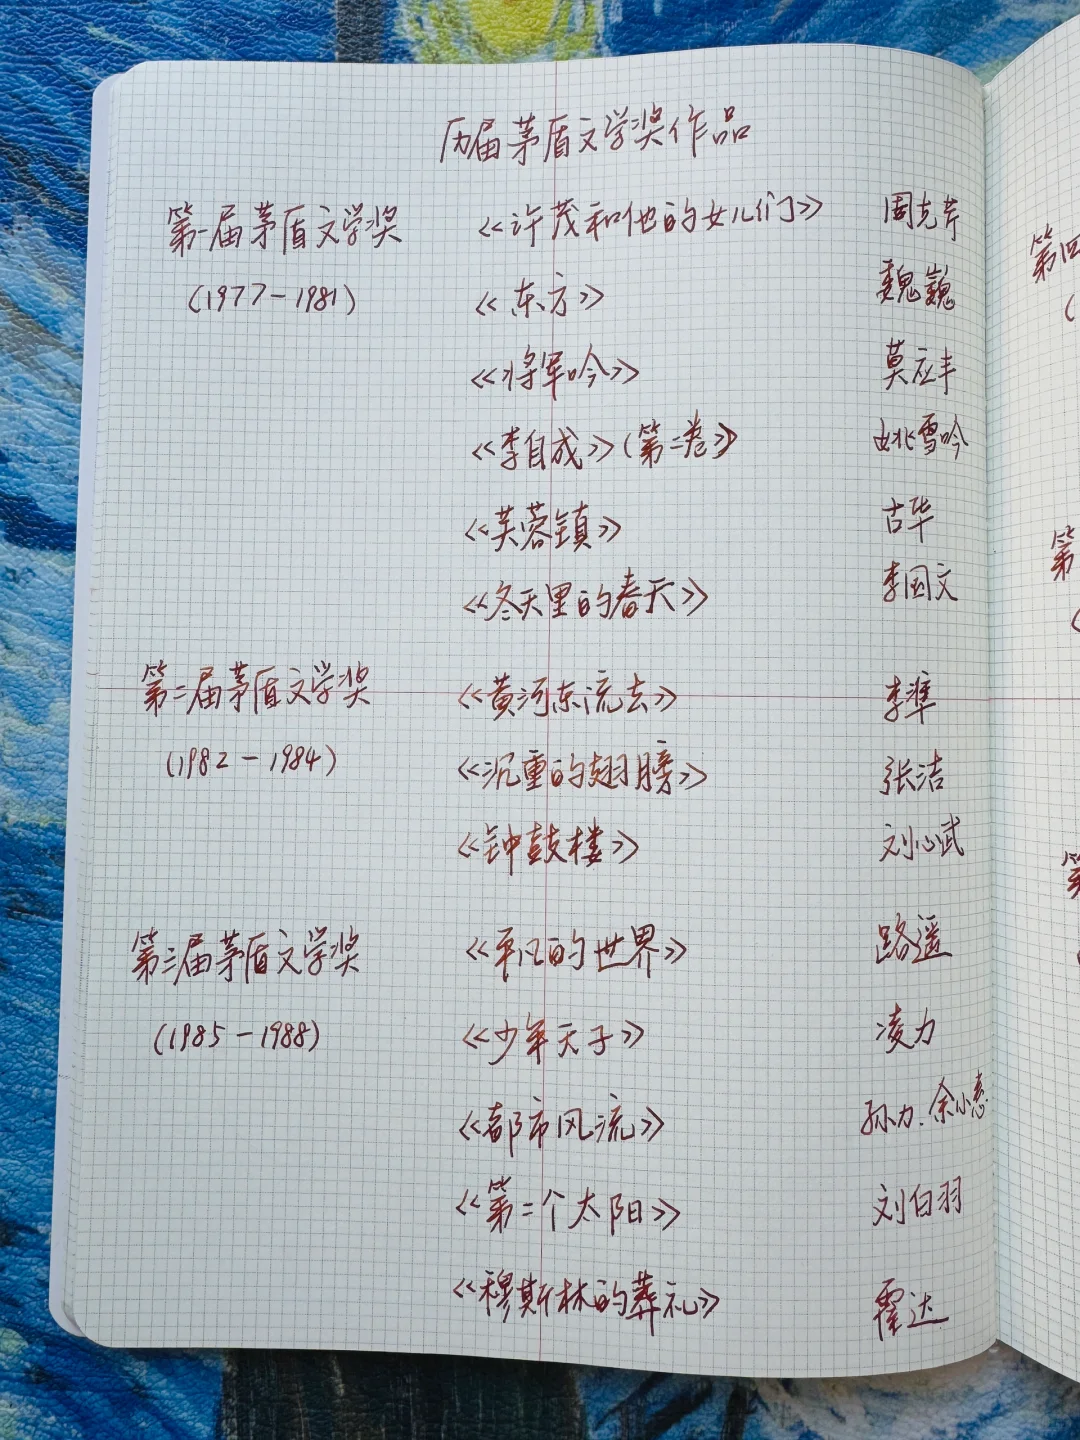 历届茅盾文学奖作品
第一届茅盾文学奖 《许茂和他的女儿们》 周克芹
(1977-1981) 《东方》 魏巍
《将军吟》 莫应丰
《李自成》(第二卷》 姚雪吟
《芙蓉镇》 古华
《冬天里的春天》 李国文
第二届茅盾文学奖 《黄河东流去》 李準
(1982-1984) 《沉重的翅膀》 张洁
《钟鼓楼》 刘心武
第三届茅盾文学奖 《平凡的世界》 路遥
(1985-1988) 《少年天子》 凌力
《都市风流》 孙力.余小惠
《第二个太阳》 刘白羽
《穆斯林的葬礼》 霍达
第四
(
第
(
第